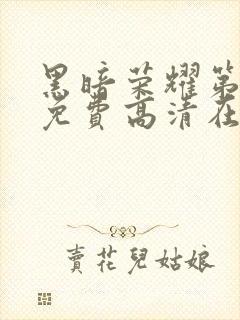 黑暗荣耀第
免費高清在
賣花兒姑娘